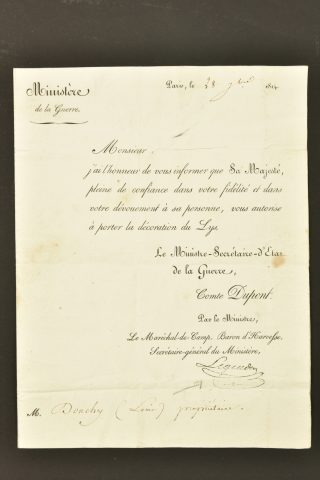 Ministère
de la Guerre.
Paris, le 28 9bre 1814
Monsieur,
j'ai l'honneur de vous informer que Sa Majesté,
pleine de confiance dans votre fidélité et dans
votre dévouement à sa personne, vous autorise
à porter la décoration du Lys.
Le Ministre-Secrétaire-d'Etat
de la Guerre,
Comte Dupont.
Par le Ministre,
Le Maréchal-de-Camp, Baron d'Harvesse,
Secrétaire-général du Ministère,
M. propriétaire.